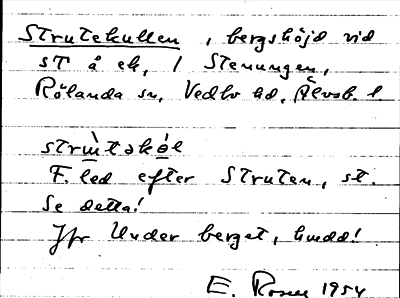 Strutekullen, bergshöjd vid
st å ek, / Stenungen,
Rölanda sn, Vedbo hd, Älvsb. l
F. led efter Struten, st.
Se detta!
Jfr Under berget, hmdd!
E. Rosen 1954